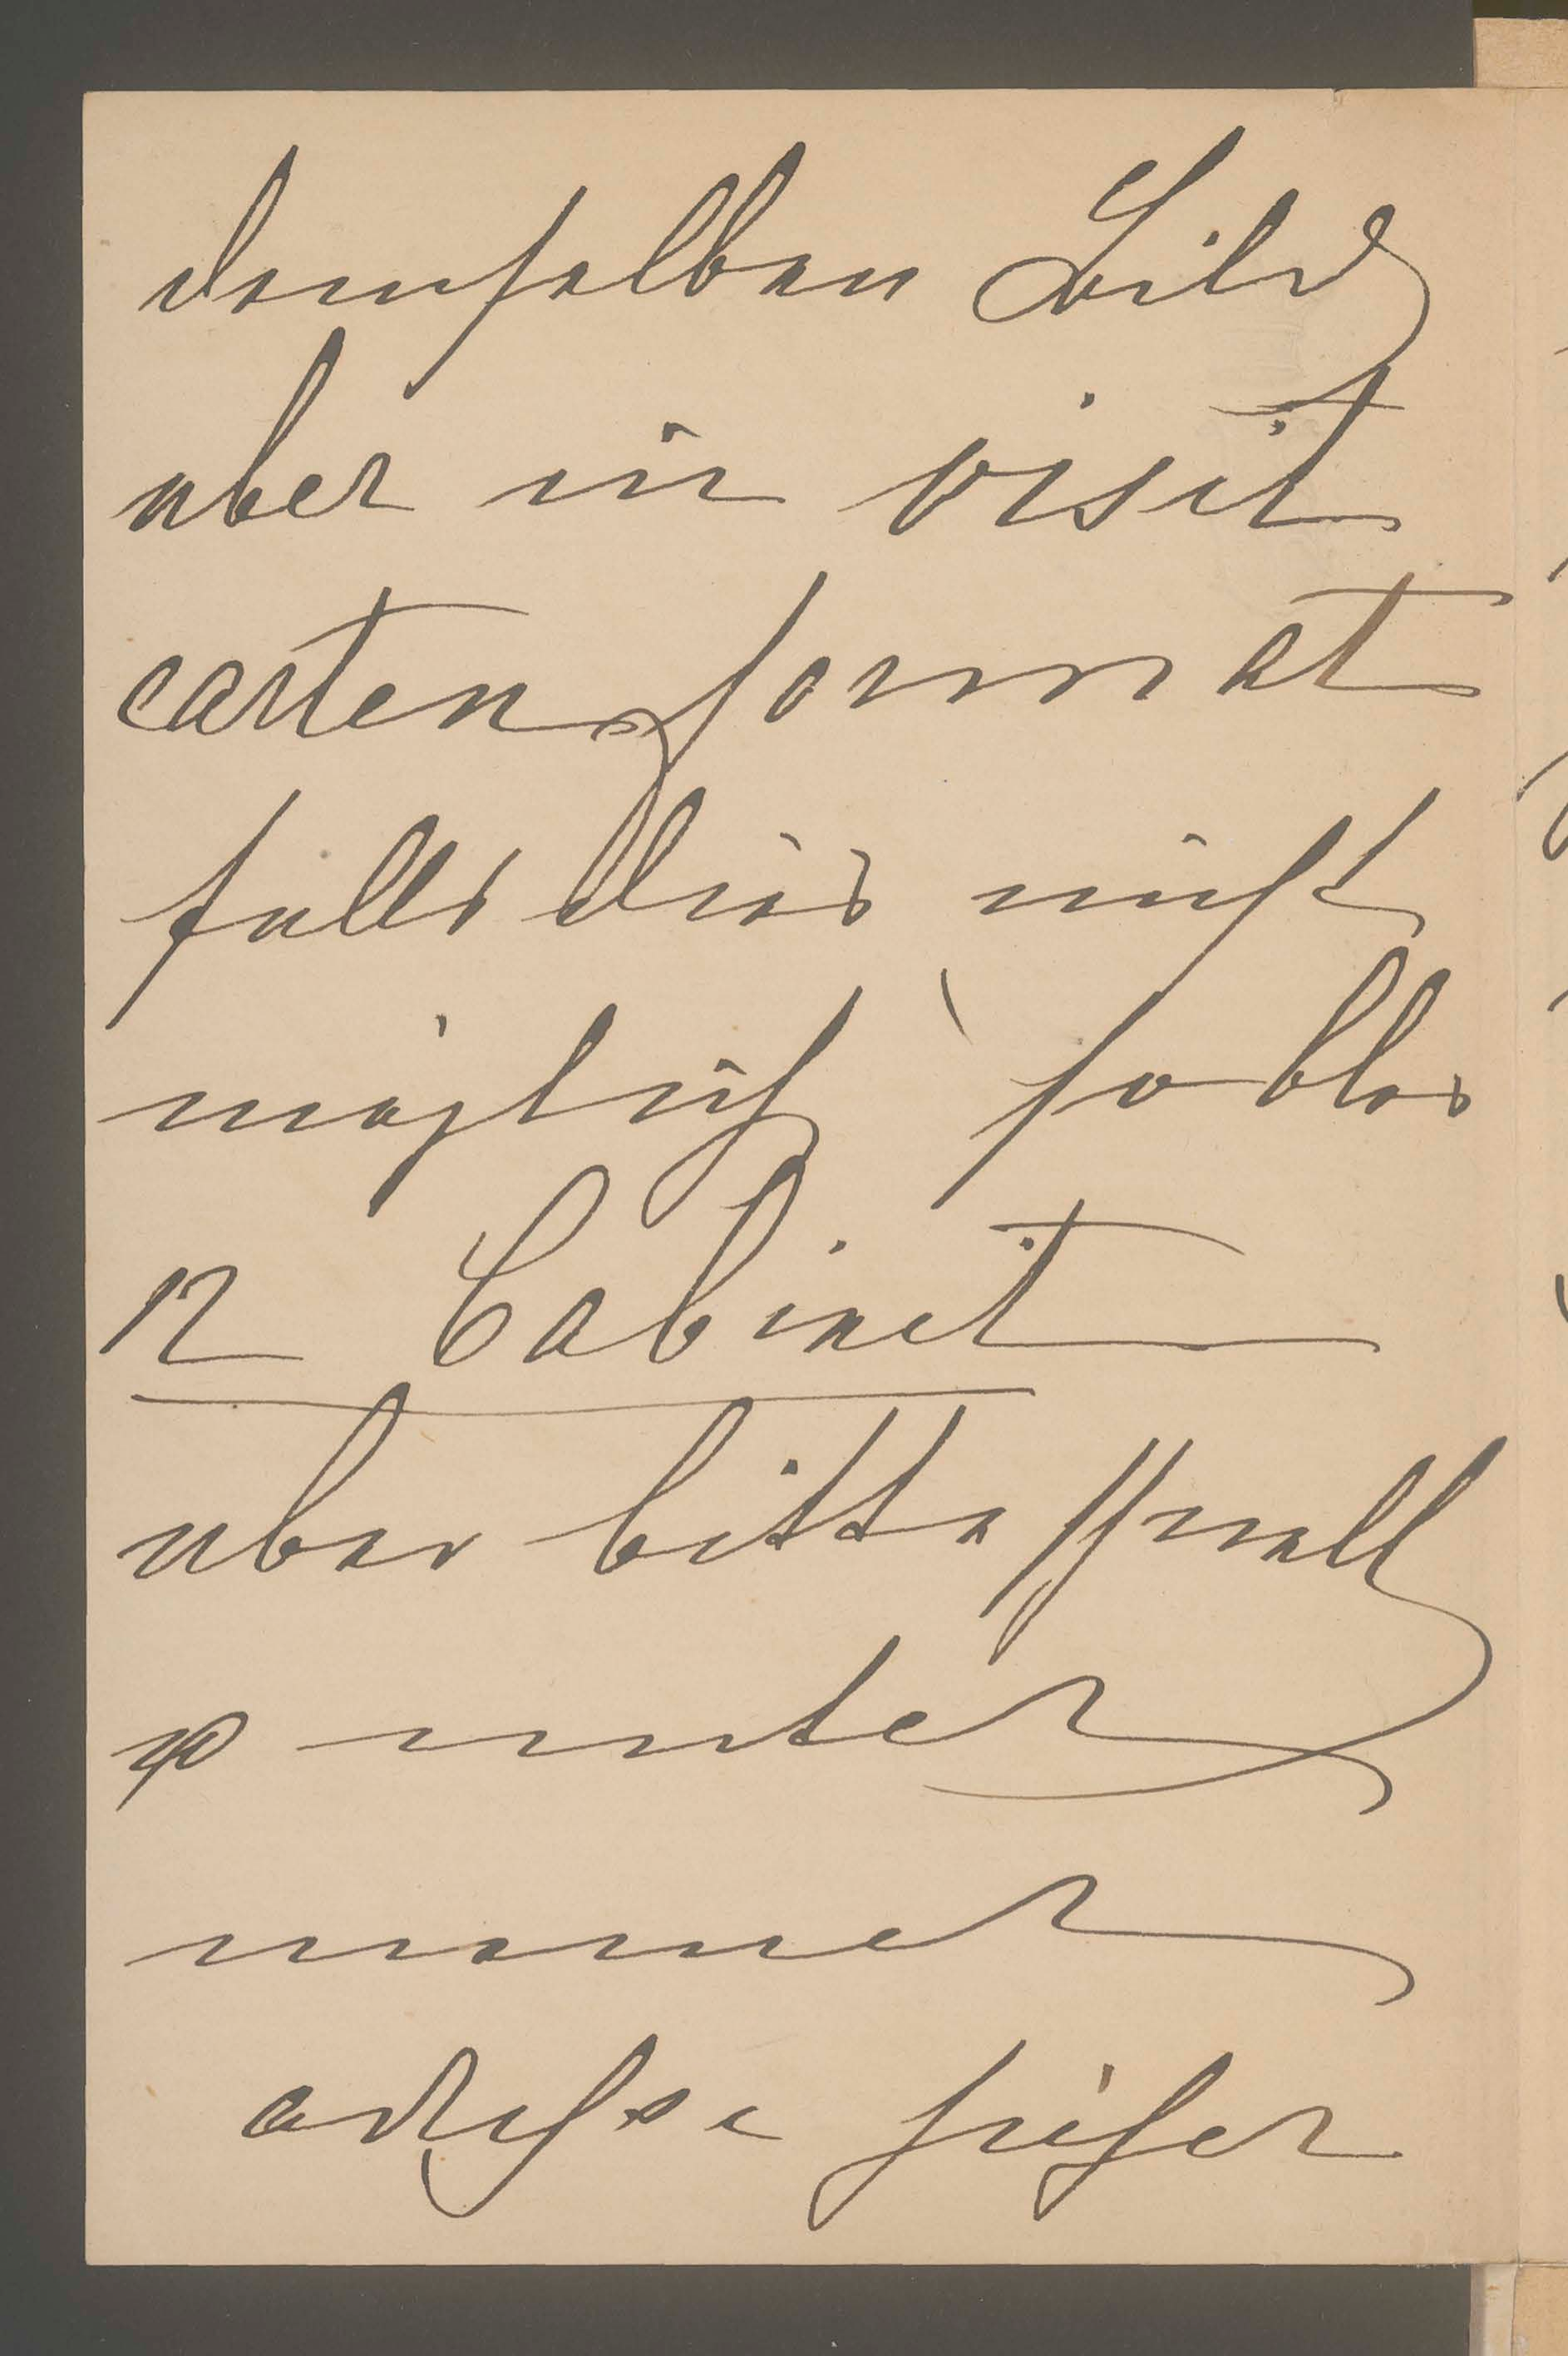 demselben Bild
aber in visit
carten format
falls dies nicht
möglich so blos
12 Cabinet
aber bitte schnell
unter
meiner
adresse hieher